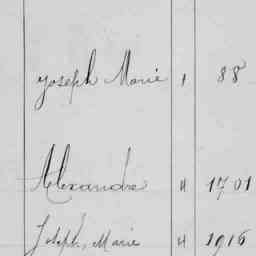 Joseph Marie 1 88
Alexandre 4 1701
Joseph, Marie 4 1916